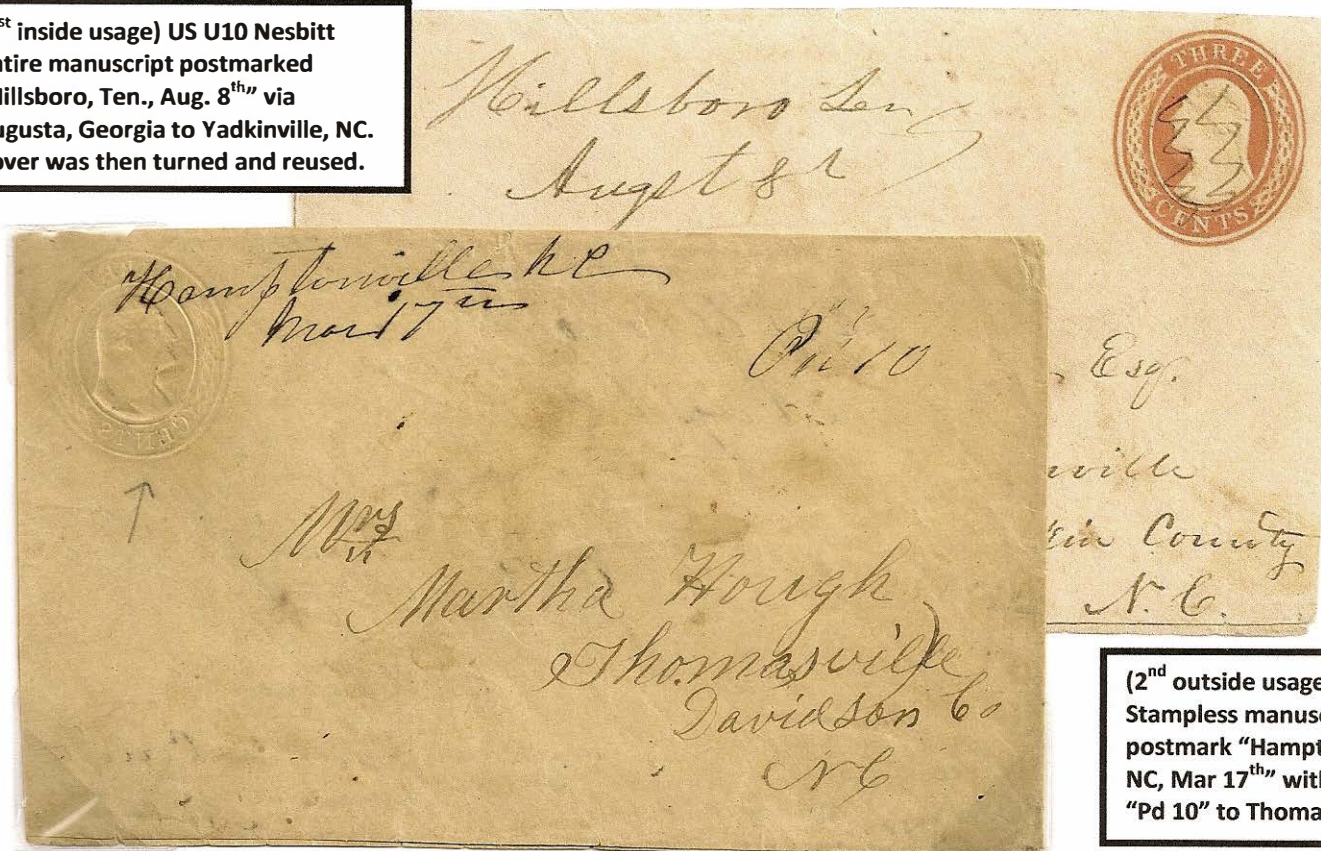 st inside usage) US U10 Nesbitt
ntire manuscript postmarked
Hillsboro, Ten., Aug. 8th” via
ugusta, Georgia to Yadkinville, NC.
over was then turned and reused.
THREE
CENTS
Hillsboro Ten
Augst 8th
Esq.
ville
kin County
N. C.
Hamptonville N C
Mar 17th
Pd 10
CENTS
Mrs
Martha Hough
Thomasville
Davidson Co
N C
(2nd outside usage
Stampless manus
postmark “Hampt
NC, Mar 17th” with
“Pd 10” to Thoma